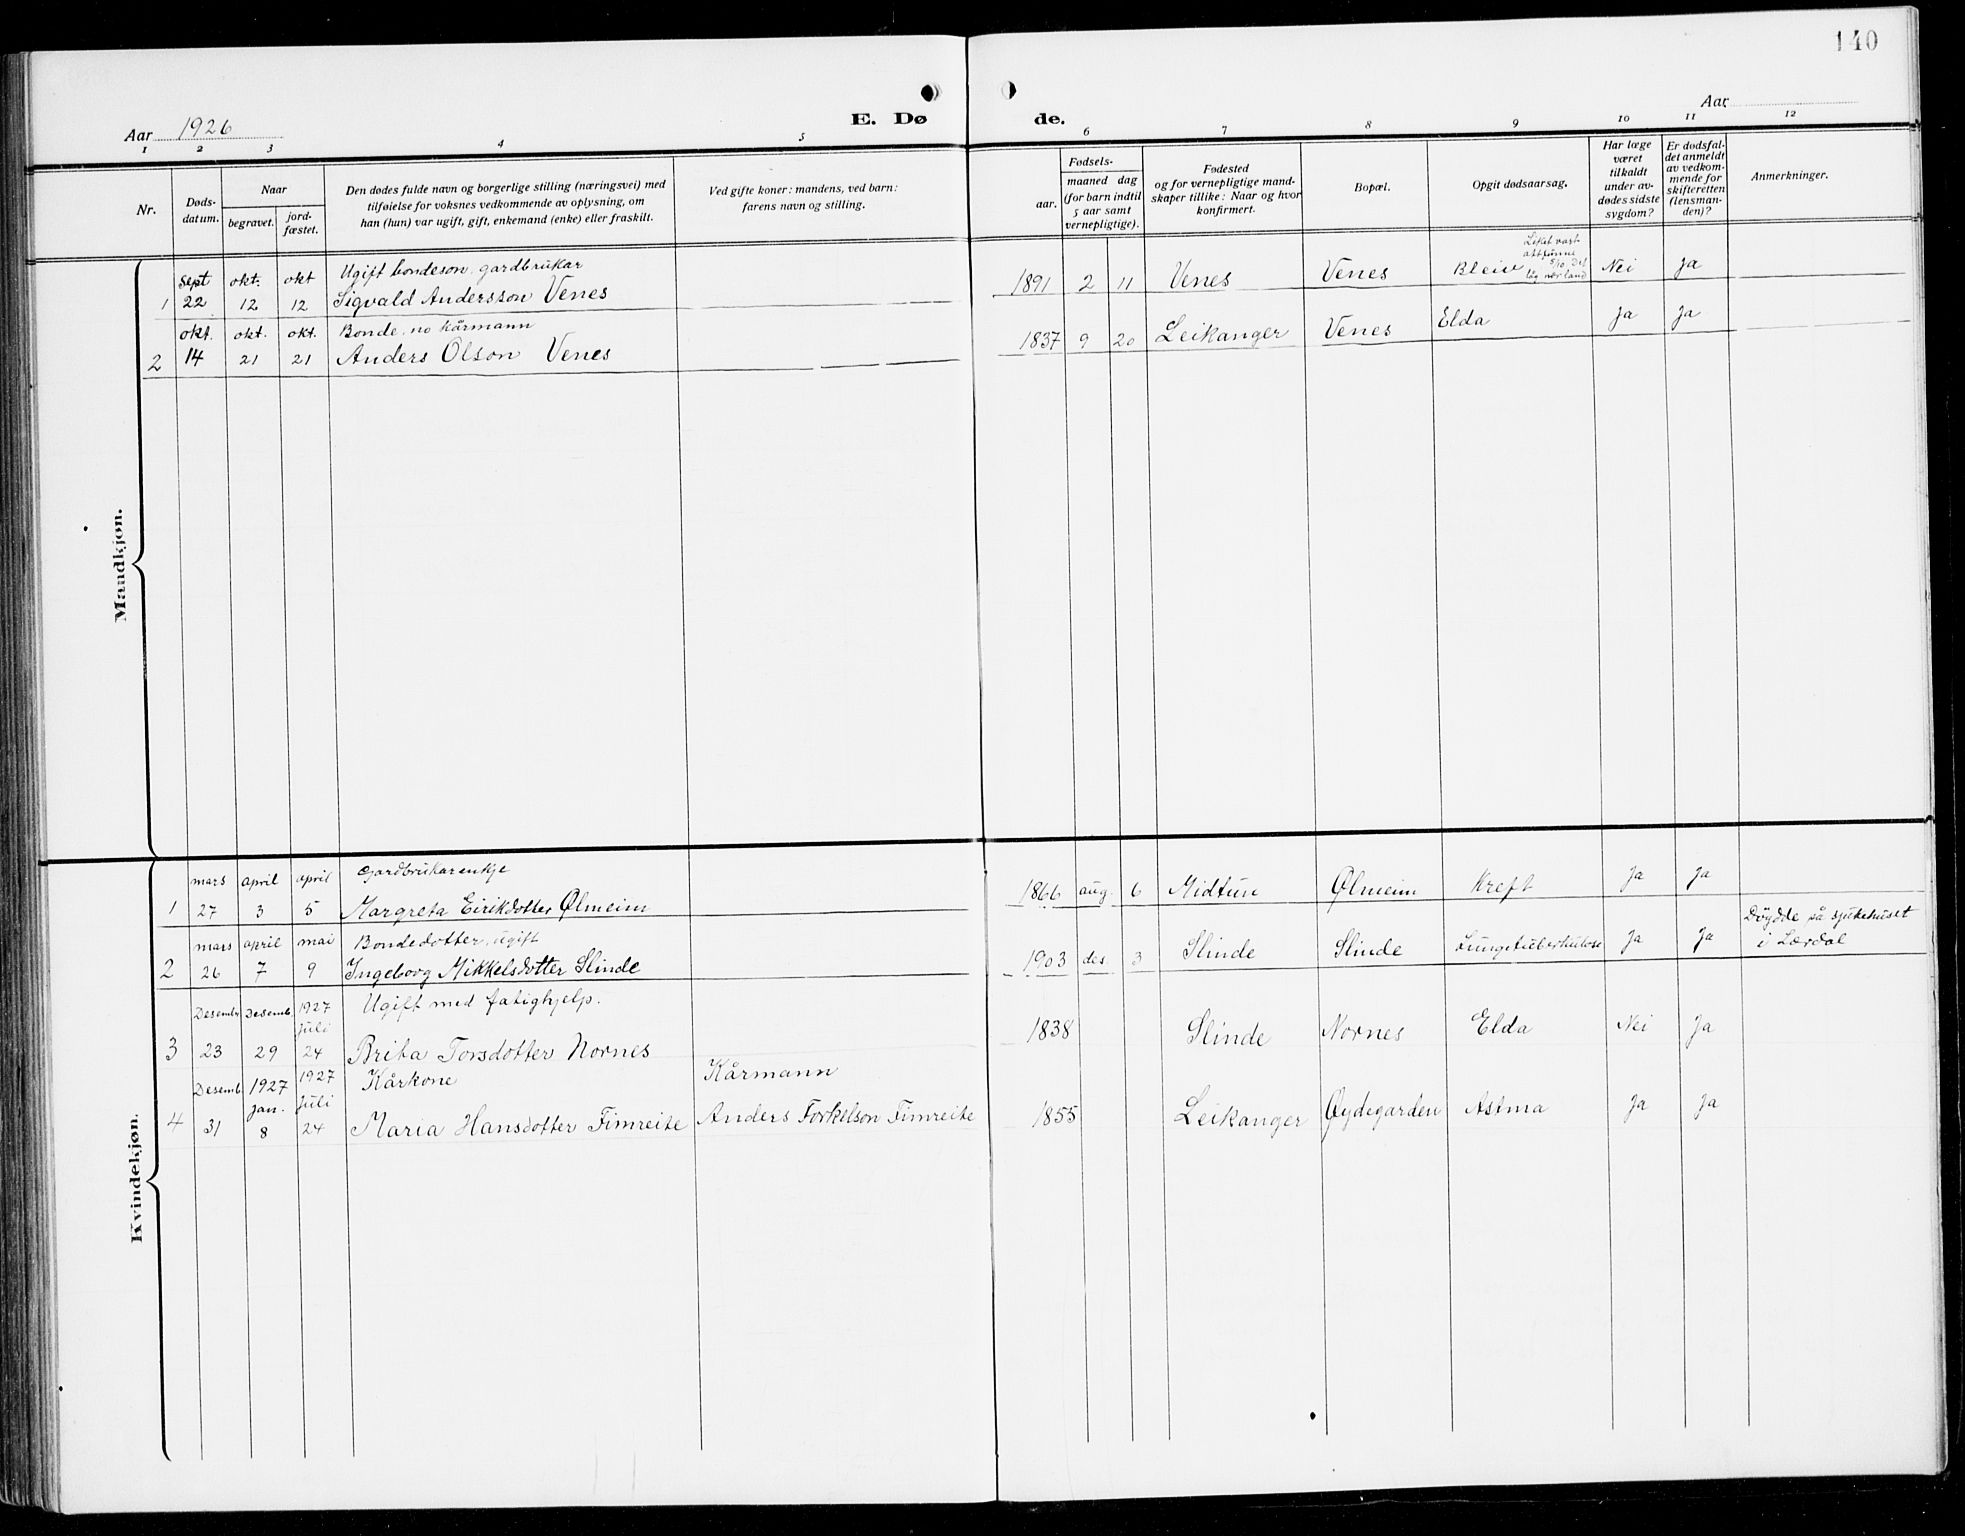 140
Aar 1926
E. Dø
de.
Aar
1 2 3 4 5 6 7 8 9 10 11 12
Nr.
Døds-
datum.
Naar
begravet.
jord-
fæstet.
Den dødes fulde navn og borgerlige stilling (næringsvei) med
tilføielse for voksnes vedkommende av oplysning, om
han (hun) var ugift, gift, enkemand (enke) eller fraskilt.
Ved gifte koner: mandens, ved barn:
farens navn og stilling.
Fødsels-
aar.
maaned dag
(for barn indtil
5 aar samt
vernepligtige).
Fødested
og for vernepligtige mand-
skaper tillike: Naar og hvor
konfirmert.
Bopæl.
Opgit dødsaarsag.
Har læge
været
tilkaldt
under av-
dødes sidste
sygdom?
Er dødsfal-
det anmeldt
av vedkom-
mende for
skifteretten
(lensman-
den)?
Anmerkninger.
Mandkjøn.
Sept okt. okt Ugift bondeson, gardbrukar
1 22 12 12 Sigvald Andersson Venes
1891 2 11 Venes Venes Bleiv Nei Ja
Liket vart
attfunne
5/10. Det
låg nær land
okt. okt. okt. Bonde, no kårmann
2 14 21 21 Anders Olson Venes
1837 9 20 Leikanger Venes Elda Ja Ja
Kvindekjøn.
mars april april Gardbrukarenkje
1 27 3 5 Margreta Eirikdotter Ølmeim
1866 aug. 6 Midtun Ølmeim Kreft Ja Ja
mars april mai Bondedotter, ugift
2 26 7 9 Ingeborg Mikkelsdotter Slinde
1903 des. 3 Slinde Slinde Lungetuberkulose Ja Ja
Døydde på sjukehuset
i Lærdal
Desembr Desemb. 1927 Ugift med fatighjelp.
Juli
3 23 29 24 Brita Torsdotter Nornes
1838 Slinde Nornes Elda Nei Ja
Desemb. 1927 1927 Kårkone Kårmann
jan. Juli
4 31 8 24 Maria Hansdotter Fimreite Anders Torkelson Fimreite
1855 Leikanger Øydegarden Astma Ja Ja